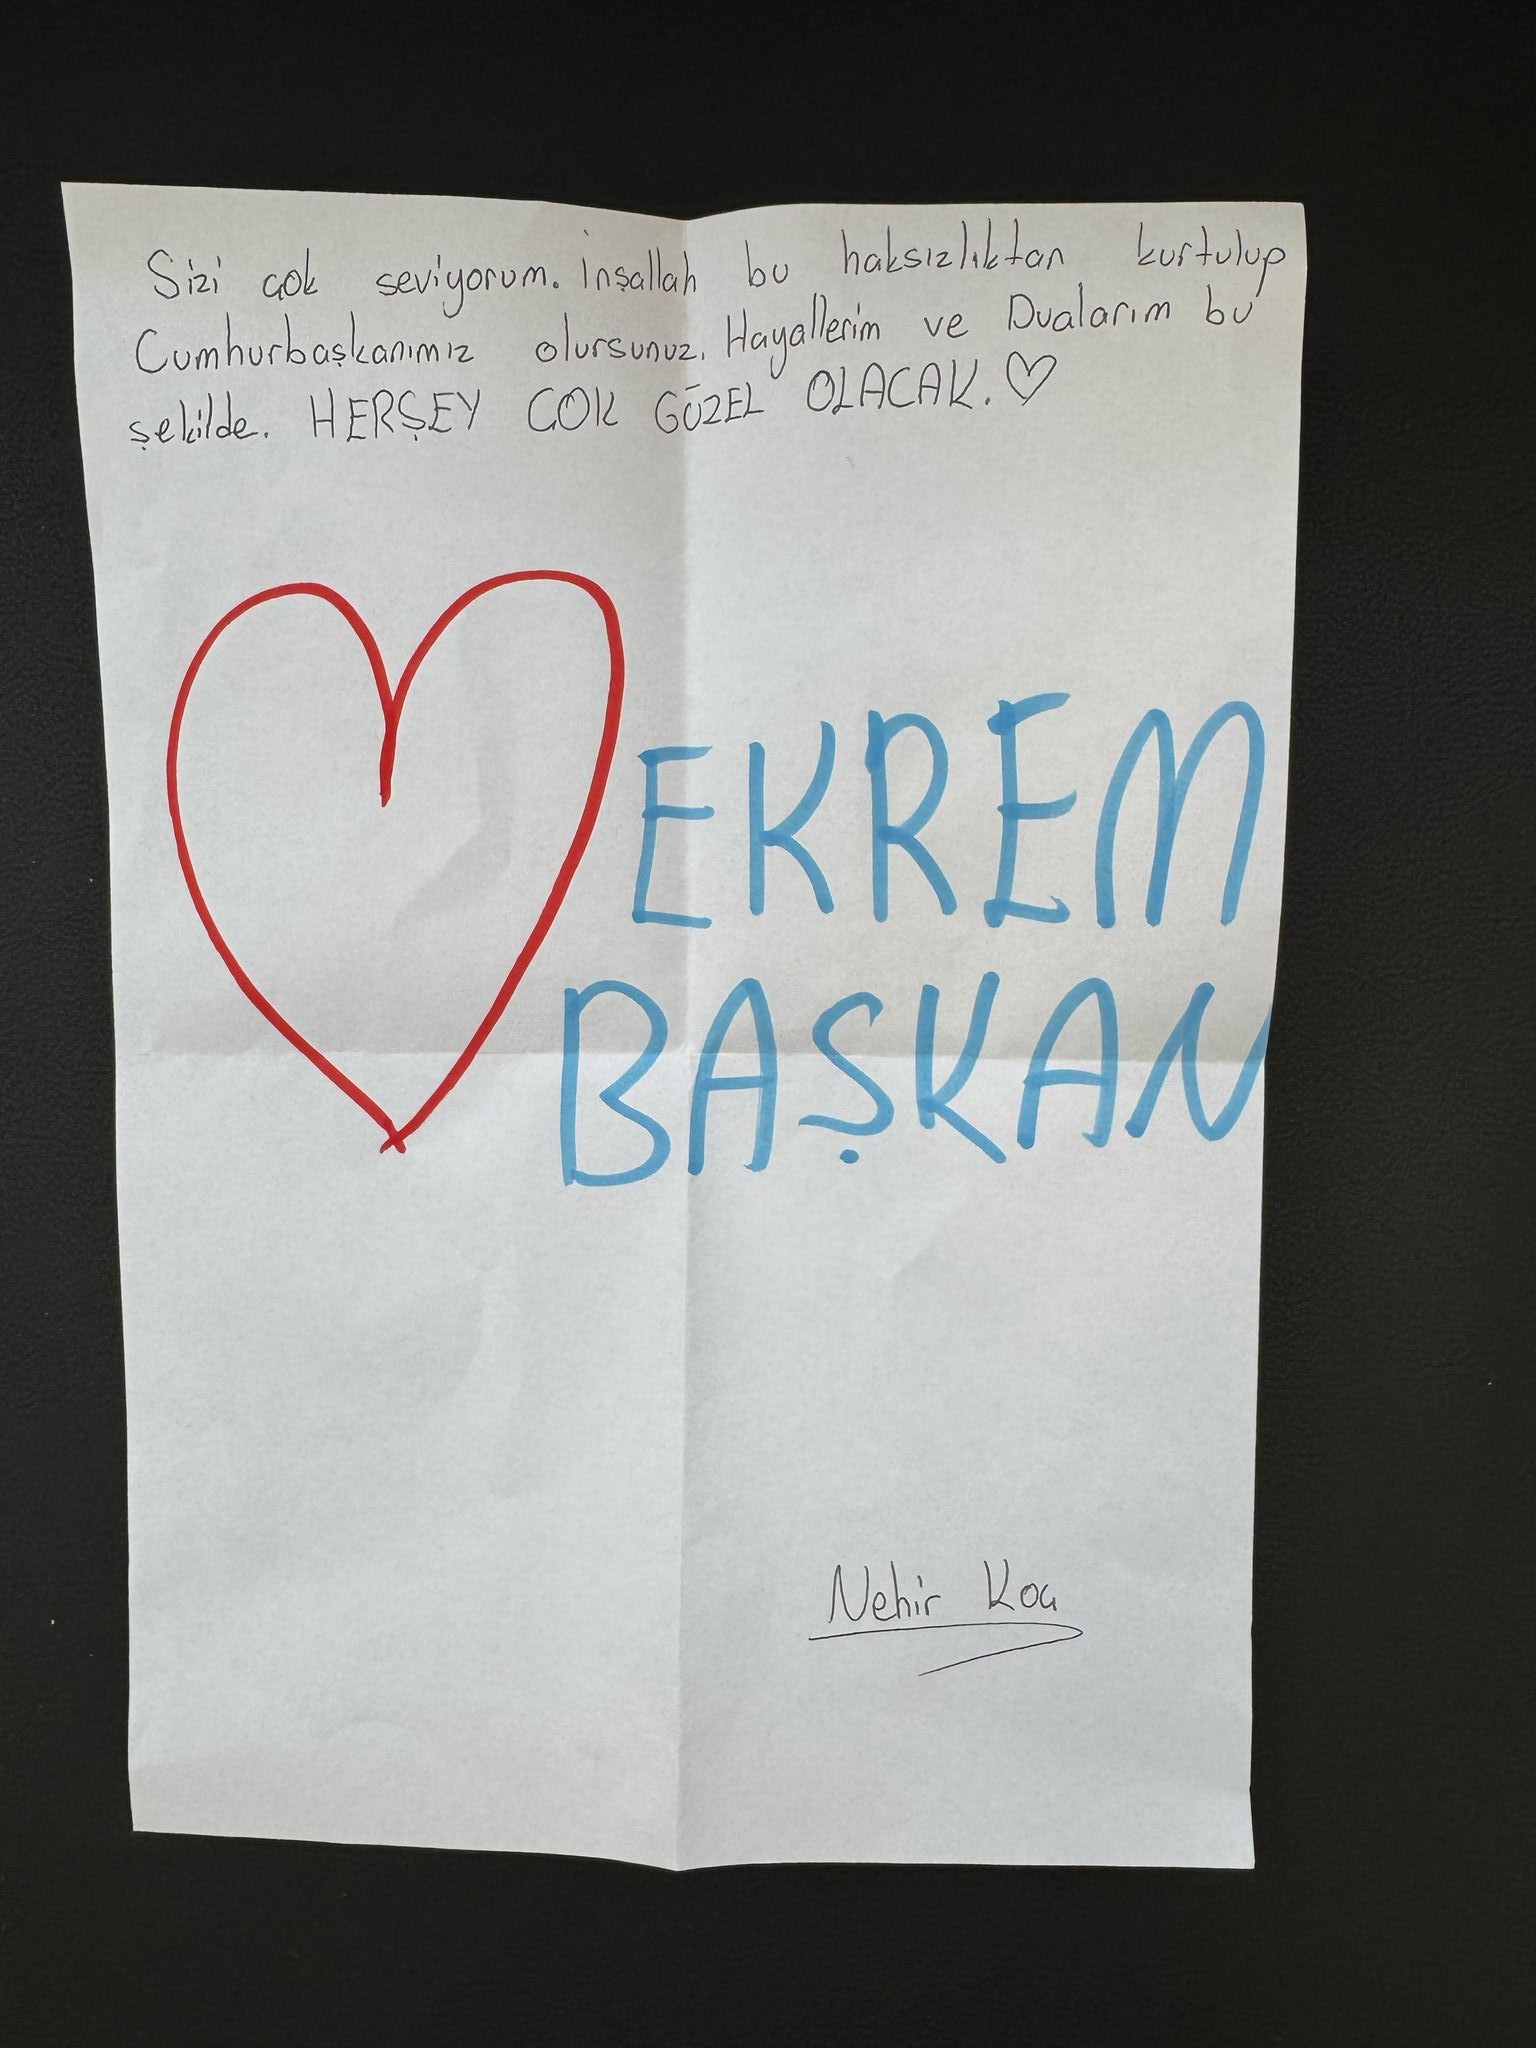 Sizi çok seviyorum. İnşallah bu haksızlıktan kurtulup
Cumhurbaşkanımız olursunuz. Hayallerim ve Dualarım bu
şekilde. HERŞEY ÇOK GÜZEL OLACAK. ♡
EKREM
BAŞKAN
Nehir Koç